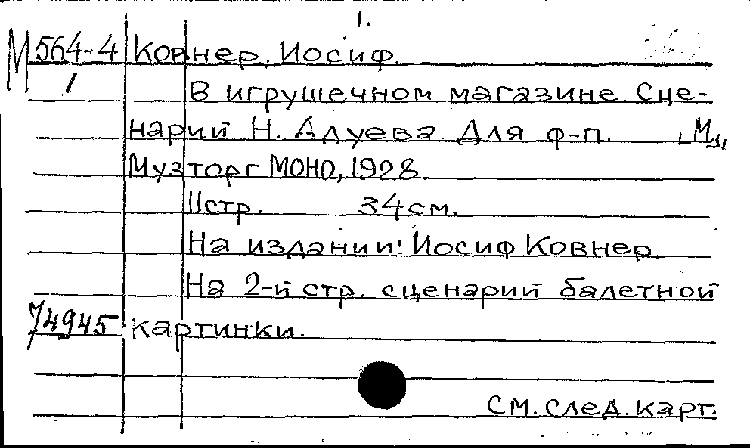 1.
М 564-4 Ковнер, Иосиф.
1 В игрушечном магазине. Сце-
нарий Н. Адуева. Для ф-п. [М.],
Музторг МОНО, 1928.
11 стр. 34 см.
На издании: Иосиф Ковнер
На 2-й стр. сценарий балетной
74945 картинки.
см. след. карт.